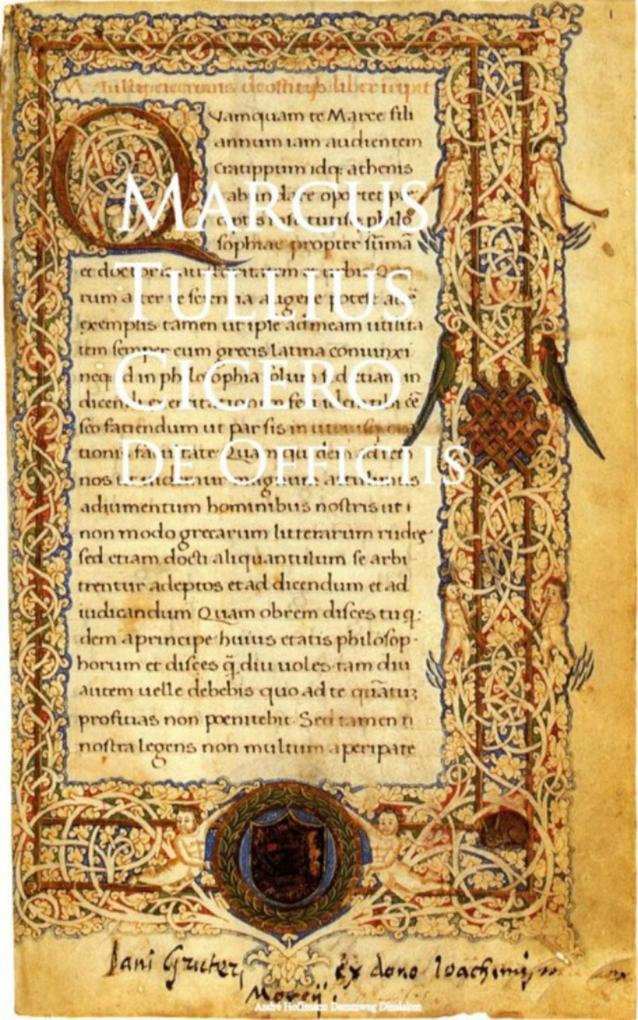 1
M. Tullii Ciceronis de officiis liber incipit
Quamquam te Marce fili
annum iam audientem
Cratippum idq; athenis
abundare oportet pre
ceptis institutisq; philo
sophiae propter sumā
et doctoris auctoritatem et urbis Quo
rum alter te scientia augere potest altē
exemplis tamen ut ipse ad meam utilita
tem semper cum grecis latina coniunxi
neq; id in philosophia solum sed etiam in
dicendi exercitatione feci idem tibi cē
seo faciendum ut par sis in utriusq; ora
tionis facultate Quam quidem ad rem
nos ut uidemur magnum attulimus
adiumentum hominibus nostris ut
non modo grecarum litterarum rudes
sed etiam docti aliquantulum se arbi
trentur adeptos et ad dicendum et ad
iudicandum Quam obrem disces tu q;
dem a principe huius etatis philosop
horum et disces q̄ diu uoles tam diu
autem uelle debebis quo ad te quātuz
proficias non poenitebit Sed tamen
nostra legens non multum a peripate
MARCUS
TULLIUS
CICERO
DE OFFICIIS
Jani Gruteri ex dono Ioachimi
Morsii
André Hoffmann Dammweg Dinslaken